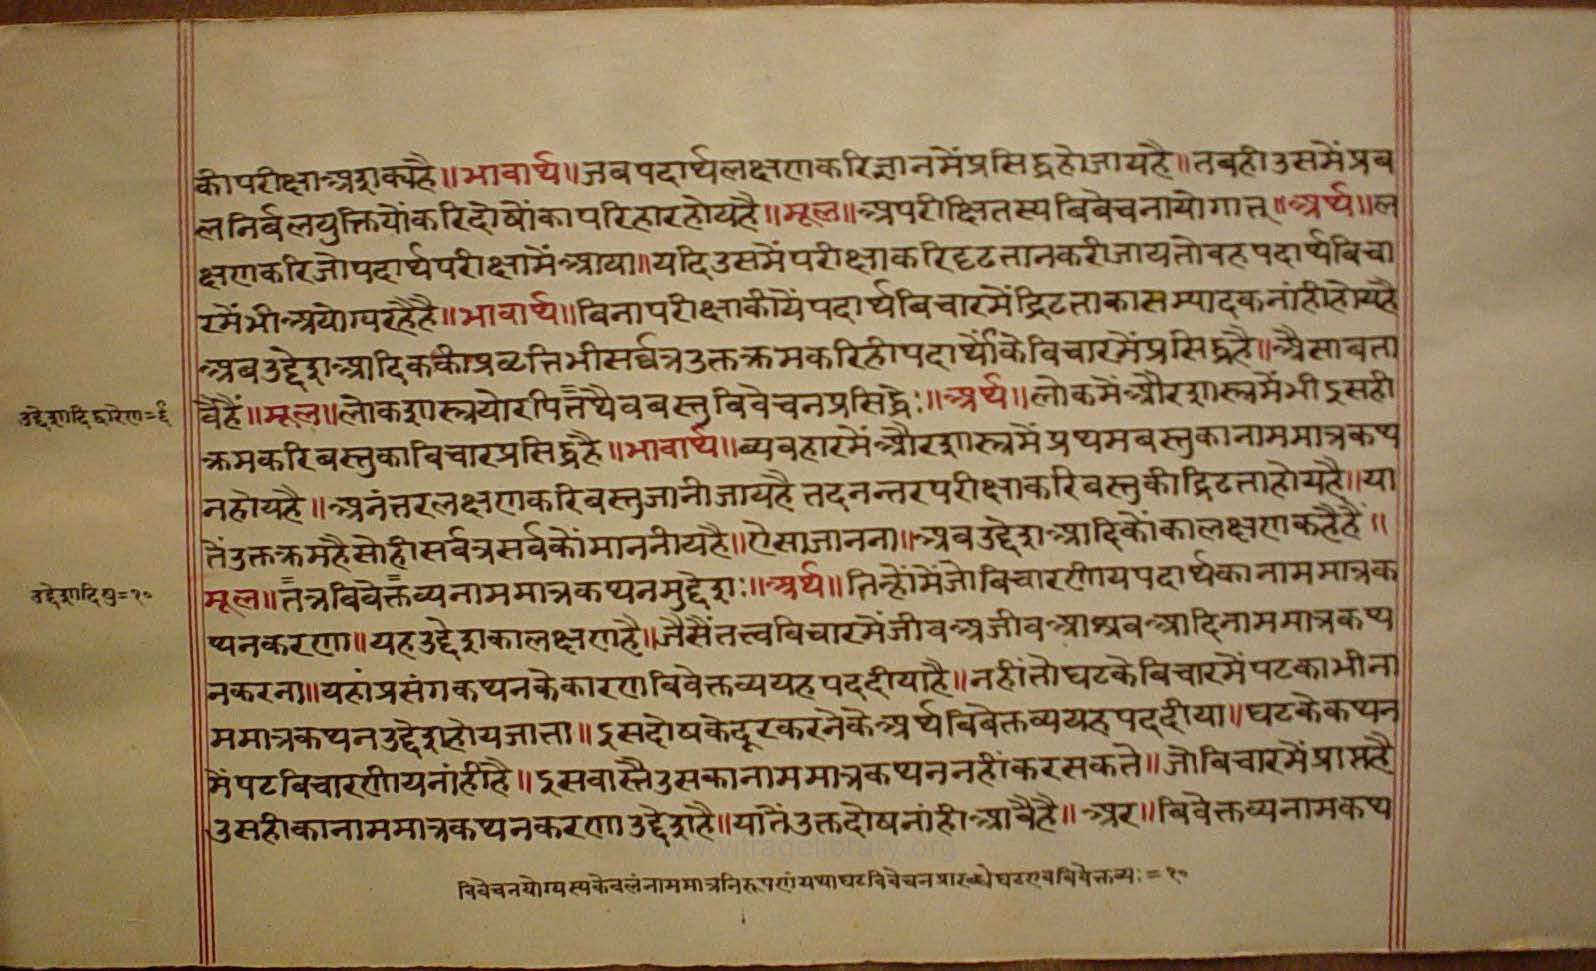 कीपरीक्षाअशक्यहै॥भावार्थ॥जबपदार्थलक्षणकरिज्ञानमेंप्रसिद्धहोजायहै॥तबहीउसमेंप्रब
लनिर्बलयुक्तियोंकरिदोषोंकापरिहारहोयहै॥मूल॥अपरीक्षितस्यबिबेचनायोगात्॥अर्थ॥ल
क्षणकरिजोपदार्थपरीक्षामेंआया॥यदिउसमेंपरीक्षाकरिदृढतानकरीजायतोवहपदार्थबिचा
रमेंभीअयोग्यरहैहै॥भावार्थ॥बिनापरीक्षाकीयेंपदार्थबिचारमेंद्रिढताकासम्पादकनांहीहोयहै
अबउद्देशआदिककीप्रवृत्तिभीसर्वत्रउक्तक्रमकरिहीपदार्थोंकेविचारमेंप्रसिद्धहै॥अैसाबता
वैहैं॥मूल॥लोकशास्त्रयोरपितथैवबस्तुबिवेचनप्रसिद्धेः॥अर्थ॥लोकमेंऔरशास्त्रमेंभीइसही
क्रमकरिबस्तुकाविचारप्रसिद्धहै॥भावार्थ॥व्यवहारमेंऔरशास्त्रमेंप्रथमबस्तुकानाममात्रकथ
नहोयहै॥अनंतरलक्षणकरिबस्तुजानीजायहैतदनन्तरपरीक्षाकरिबस्तुकीद्रिढताहोयहै॥या
तेंउक्तक्रमहैसोहीसर्बत्रसर्वकोंमाननीयहै॥ऐसाजानना॥अबउद्देशआदिकोंकालक्षणकहैहैं॥
मूल॥तत्रबिबेक्तव्यनाममात्रकथनमुद्देशः॥अर्थ॥तिन्होंमेंजोबिचारणीयपदार्थकानाममात्रक
थनकरणा॥यहउद्देशकालक्षणहै॥जैसैंतत्त्वविचारमेंजीवअजीवआश्रवआदिनाममात्रकथ
नकरना॥यहांप्रसंगकथनकेकारणबिवेक्तव्ययहपददीयाहै॥नहींतोघटकेबिचारमेंपटकाभीना
ममात्रकथनउद्देशहोयजाता॥इसदोषकेदूरकरनेकेअर्थबिबेक्तव्ययहपददीया॥घटकेकथन
मेंपटबिचारणीयनांहीहै॥इसवास्तैउसकानाममात्रकथननहींकरसकते॥जोबिचारमेंप्राप्तहै
उसहीकानाममात्रकथनकरणाउद्देशहै॥यातेंउक्तदोषनांहीआवैहै॥अर॥बिवेक्तव्यनामकथ
उद्देशादिद्वारेण=९
उद्देशादिषु=१०
विवेचनयोग्यस्यकेवलंनाममात्रनिरूपणंयथाघटविवेचनप्रारब्धेघटएवबिवेक्तव्यः=१०
www.vitragelibrary.org